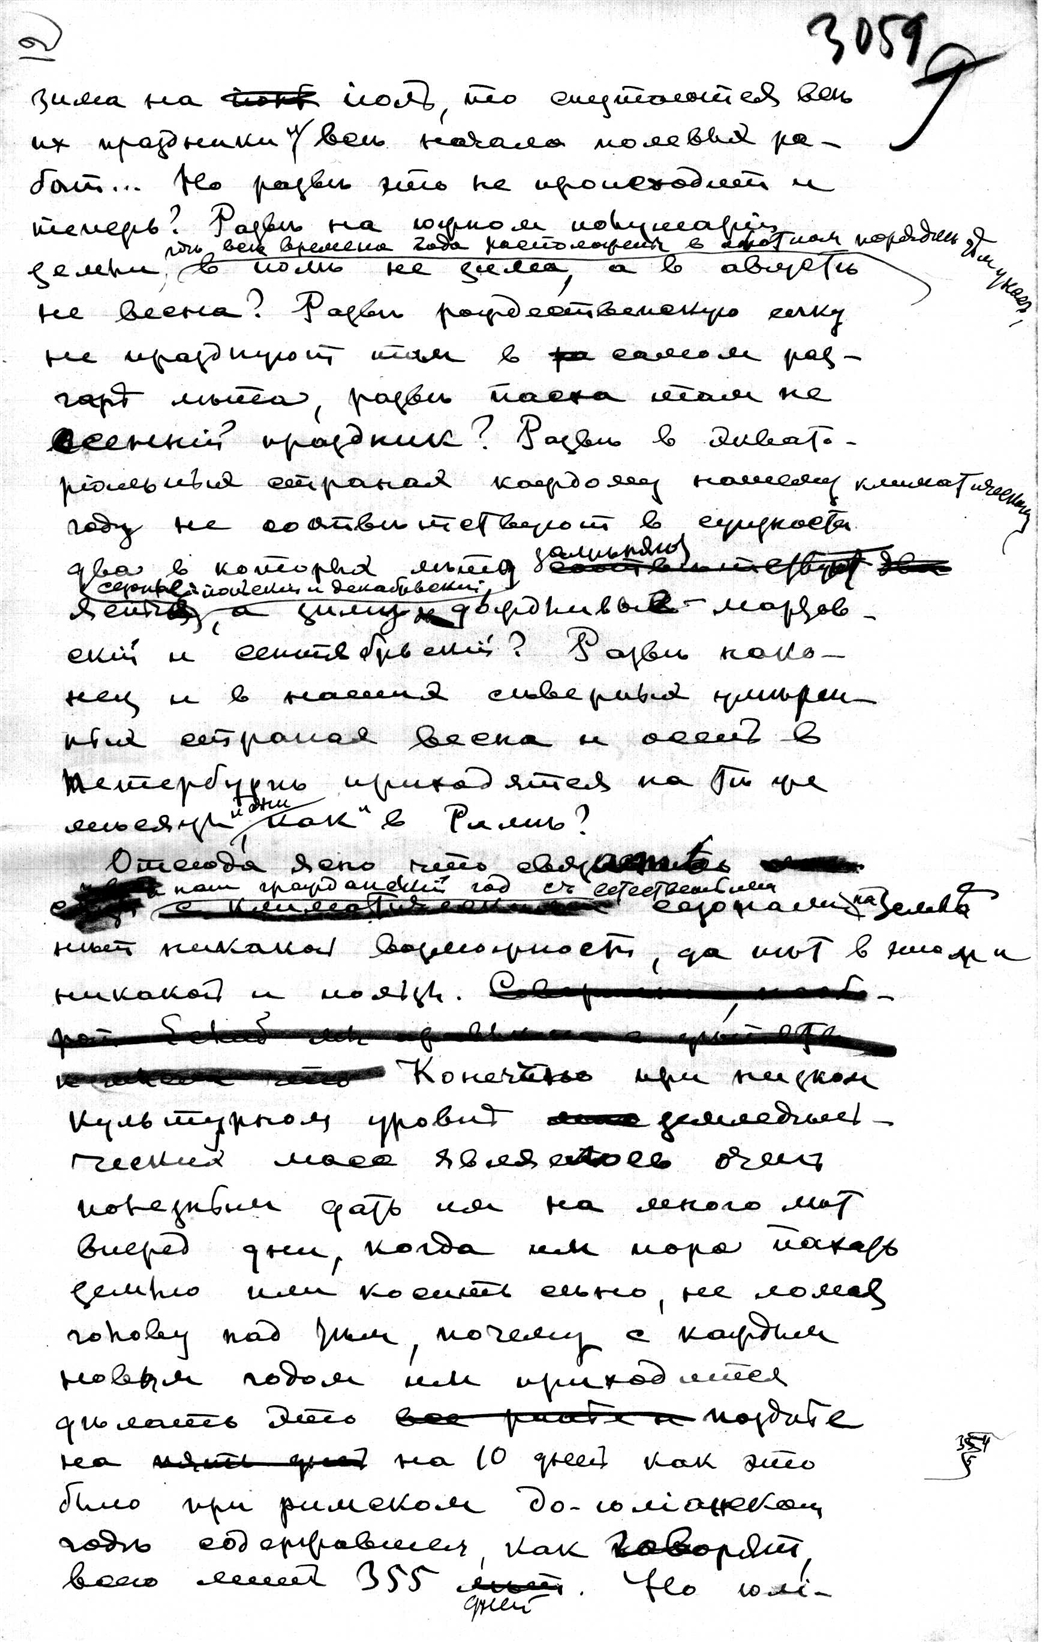 3059
9
зима на июль, то спутаются всѣ
их праздники и всѣ начала полевых ра-
бот... Но развѣ это не происходит и
теперь? Развѣ на южном полушаріи
земли, гдѣ всѣ времена года расположены в обратном порядкѣ
в іюлѣ не зима, а в августѣ
не весна? Развѣ рождественскую елку
не празднуют там в самом раз-
гарѣ лѣта, развѣ пасха там не
осенній праздник? Развѣ в эквато-
ріальных странах каждому нашему климатическому
году не соотвѣтствуют в сущности
два в которых лѣто
сезоны іюньскій и декабрьскій
а зиму дождливые - мартов-
скій и сентябрьскій? Развѣ нако-
нец и в наших сѣверных умѣрен-
ных странах весна и осень в
Петербургѣ приходятся на тѣ же
мѣсяцы и дни как и в Римѣ?
Отсюда ясно что связать
наш гражданскій год съ естественными
сезонами на землѣ
нѣт никакой возможности, да нѣт в этом и
никакой и нужды.
Конечно при низком
культурном уровнѣ земледѣль-
ческих масс являлось очень
полезным дать им на много лѣт
вперед дни, когда им пора пахать
землю или косить сѣно, не ломая
голову над тѣм, почему с каждым
новым годом им приходится
дѣлать это позднѣе
на на 10 дней как это
было при римском до-юліанском
годѣ содержавшем, как говорят,
всего лишь 355 дней. Но юлі-
354